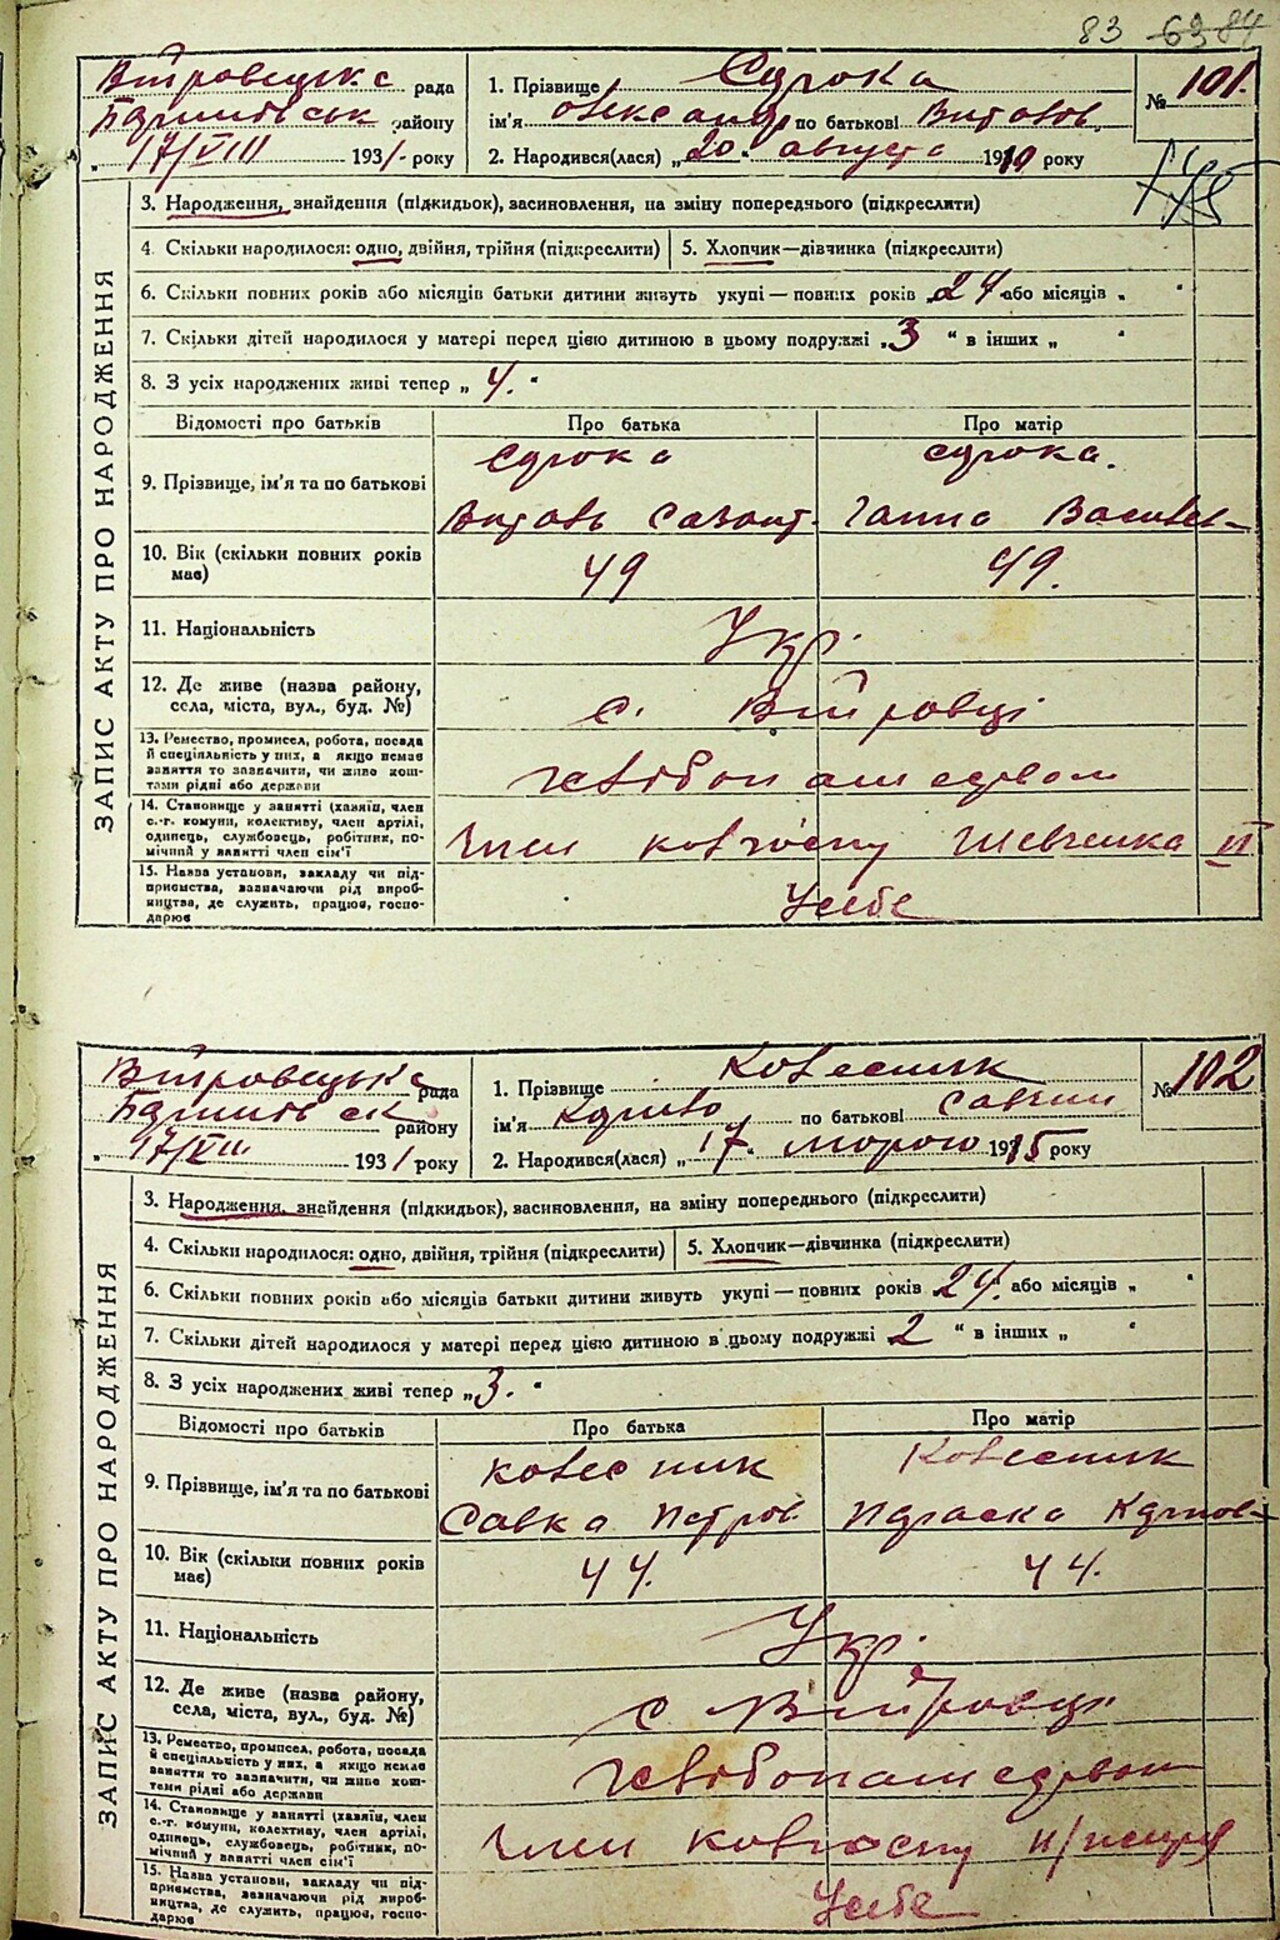 83 63 84
Війтовецька рада
району
„ 17/VIII 1931 року
1. Прізвище Сорока
ім'я Олександр по батькові
2. Народився(лася) „20“ августа 1910 року
№ 101.
ЗАПИС АКТУ ПРО НАРОДЖЕННЯ
3. Народження, знайдення (підкидьок), засиновлення, на зміну попереднього (підкреслити)
4. Скільки народилося: одно, двійня, трійня (підкреслити)
5. Хлопчик—дівчинка (підкреслити)
6. Скільки повних років або місяців батьки дитини живуть укупі — повних років „24 або місяців „ “
7. Скільки дітей народилося у матері перед цією дитиною в цьому подружжі „3 “ в інших „ “
8. З усіх народжених живі тепер „ 4. “
Відомості про батьків
Про батька
Про матір
9. Прізвище, ім'я та по батькові
Сорока
Сорока.
Ганна Васильев-
10. Вік (скільки повних років має)
49
49.
11. Національність
Укр.
12. Де живе (назва району, села, міста, вул., буд. №)
с. Війтовці
13. Ремество, промисел, робота, посада й спеціяльність у них, а якщо немає заняття то зазначити, чи живе коштами рідні або держави
хлібопашеством
14. Становище у занятті (хазяїн, член с.-г. комуни, колективу, член артілі, одинець, службовець, робітник, помічний у занятті член сім'ї
Член колгоспу Шевченка
15. Назва установи, закладу чи підприємства, зазначаючи рід виробництва, де служить, працює, господарює
У себе
Війтовецька рада
району
„ 17/VIII 1931 року
1. Прізвище Колесник
ім'я по батькові Савчин
2. Народився(лася) „17“ марта 1915 року
№ 102
ЗАПИС АКТУ ПРО НАРОДЖЕННЯ
3. Народження, знайдення (підкидьок), засиновлення, на зміну попереднього (підкреслити)
4. Скільки народилося: одно, двійня, трійня (підкреслити)
5. Хлопчик—дівчинка (підкреслити)
6. Скільки повних років або місяців батьки дитини живуть укупі — повних років „24.“ або місяців „ “
7. Скільки дітей народилося у матері перед цією дитиною в цьому подружжі „2 “ в інших „ “
8. З усіх народжених живі тепер „3. “
Відомості про батьків
Про батька
Про матір
9. Прізвище, ім'я та по батькові
Колесник
Колесник
Савка Петров.
Параска Карпов-
10. Вік (скільки повних років має)
44.
44.
11. Національність
Укр.
12. Де живе (назва району, села, міста, вул., буд. №)
с Війтовці
13. Ремество, промисел, робота, посада й спеціяльність у них, а якщо немає заняття то зазначити, чи живе коштами рідні або держави
хлібопашеством
14. Становище у занятті (хазяїн, член с.-г. комуни, колективу, член артілі, одинець, службовець, робітник, помічний у занятті член сім'ї
Член колгоспу
15. Назва установи, закладу чи підприємства, зазначаючи рід виробництва, де служить, працює, господарює
У себе